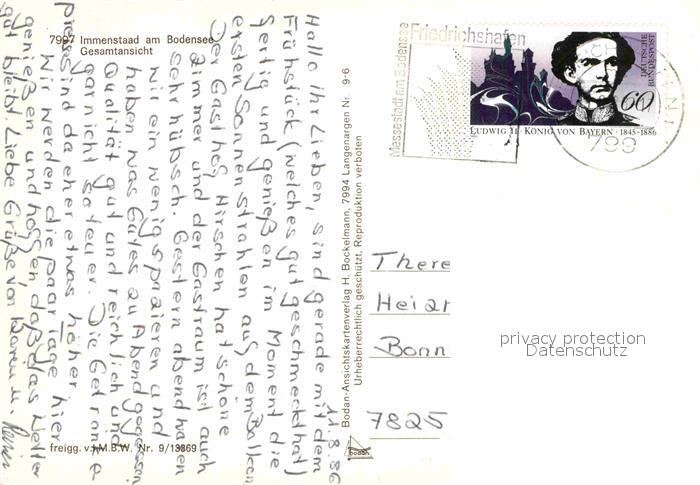 7997 Immenstaad am Bodensee
Gesamtansicht
11.8.86
Hallo Ihr Lieben, sind gerade mit dem
Frühstück (welches gut geschmeckt hat)
fertig und genießen im Moment die
ersten Sonnenstrahlen auf dem Balkon
Der Gasthof Hirschen hat schöne
Zimmer und der Gastraum ist auch
sehr hübsch. Gestern abend haben
wir ein wenig spazieren und
haben was Gutes zu Abend gegessen
Qualität gut und reichlich und
garnicht so teuer. Die Getränke
preise sind da eher etwas höher.
Wir werden die paar Tage hier
genießen und hoffen daß das Wetter
gut bleibt. Liebe Grüße von Karin u.
freigg. v. I.M.B.W. Nr. 9/13869
Bodan-Ansichtskartenverlag H. Bockelmann, 7994 Langenargen Nr. 9-6
Urheberrechtlich geschützt, Reproduktion verboten
bodan
Messestadt am Bodensee
Friedrichshafen
DEUTSCHE
BUNDESPOST
60
LUDWIG II. · KÖNIG VON BAYERN · 1845-1886
799
There
Heizr
Bonn
7825
privacy protection
Datenschutz